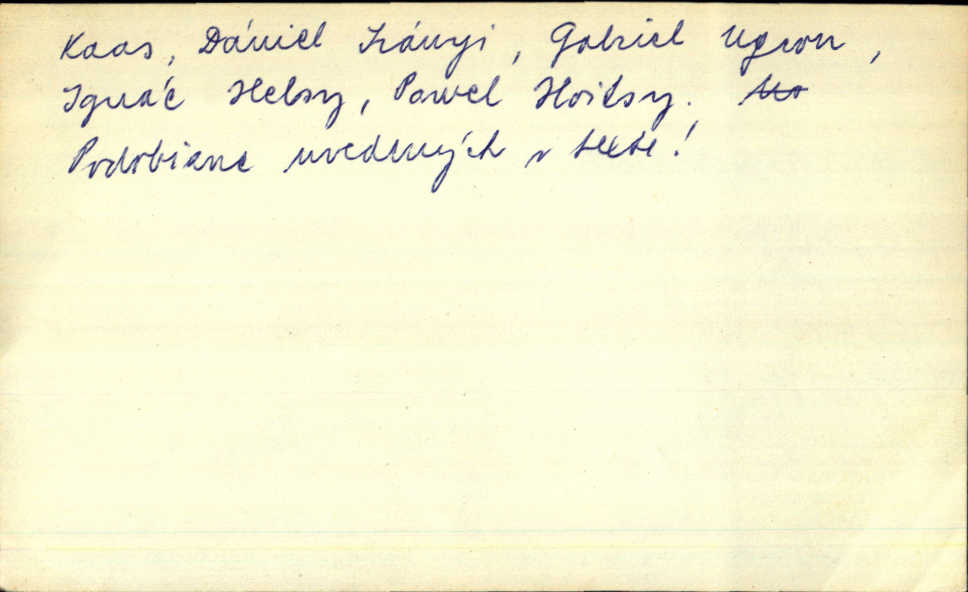 Kaas, Dániel Irányi, Gabriel Ugron,
Ignác Helsy, Pavel Hoitsy.
Podobizne uvedených v texte!